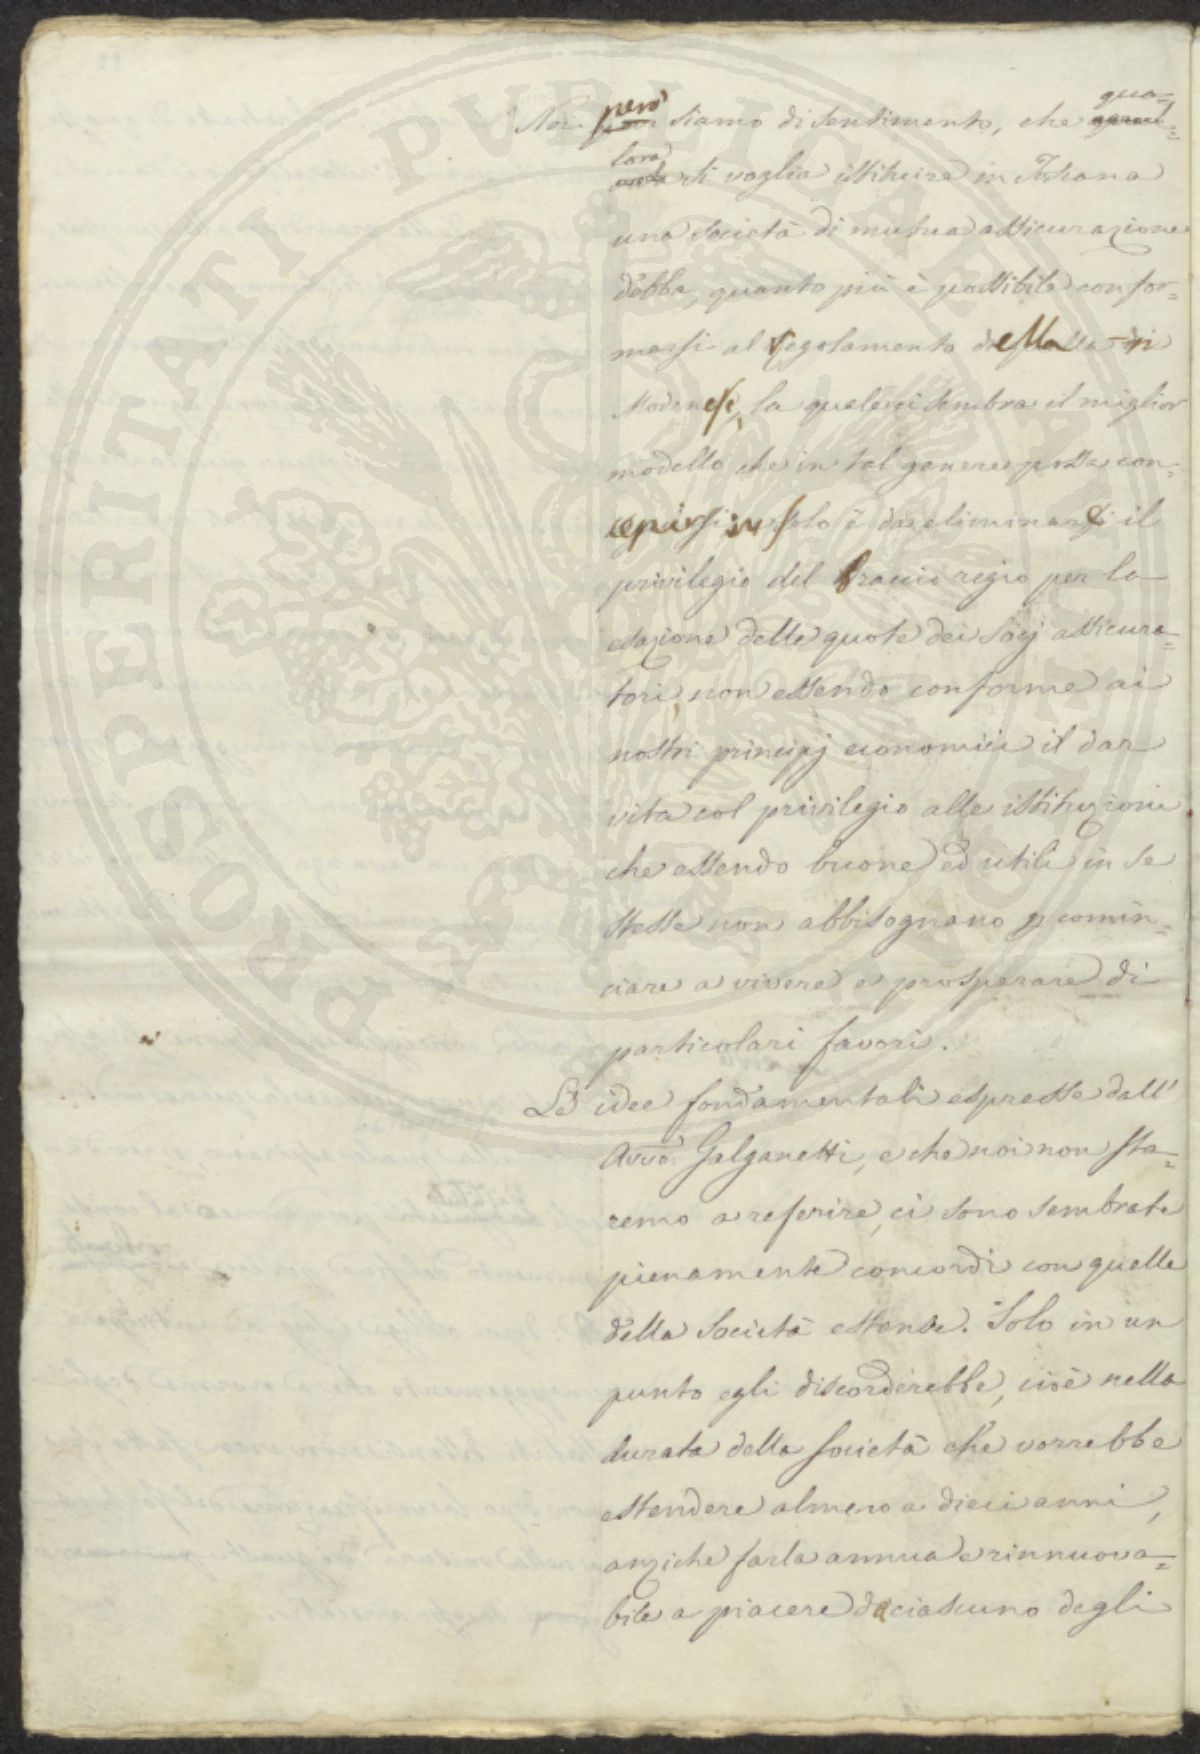 Noi però siamo di sentimento, che qua=
lora si voglia istituire in Toscana
una Società di mutua assicurazione
debba, quanto più è possibile confor=
marsi al regolamento della
Modenese, la quale ci sembra il miglior
modello che in tal genere possa con=
cepirsi: Solo è da eliminarsi il
privilegio del braccio regio per la
esazione delle quote dei socj assicura=
tori, non essendo conforme ai
nostri principj economici il dar
vita col privilegio alle istituzioni
che essendo buone ed utili in se
stesse non abbisognano p comin=
ciare a vivere e prosperare di
particolari favori.
Le idee fondamentali espresse dall'
Avvo. Galganetti, e che noi non sta=
remo a referire, ci sono sembrate
pienamente concordi con quelle
della Società estense. Solo in un
punto egli discorderebbe, cioè nella
durata della Società che vorrebbe
estendere almeno a dieci anni,
anziche farla annua e rinnuova=
bile a piacere di ciascuno degli
PROSPERITATI PVBLICAE AVGENDAE